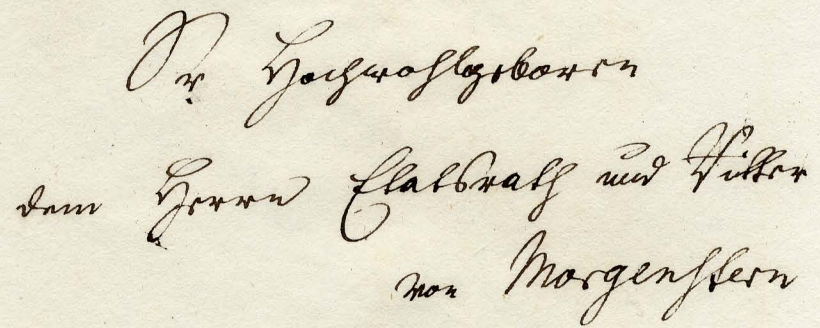 Sr Hochwohlgeboren
dem Herrn Etatsrath und Ritter
von Morgenstern